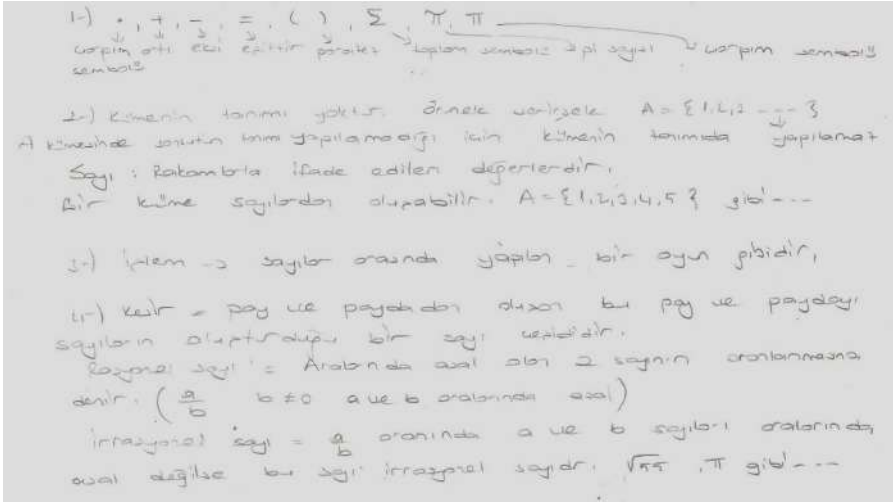 1-) ., +, -, =, ( ), Σ, π, π
çarpım artı eksi eşittir parantez toplam sembolü pi sayısı çarpım sembolü
sembolü
2-) Kümenin tanımı yoktur. Örnek verirsek A = {1,2,3 ---- }
A kümesinde sonsuzun tanımı yapılamadığı için kümenin tanımıda yapılamaz
Sayı : Rakamlarla ifade edilen değerlerdir.
Bir küme sayılardan oluşabilir. A = {1,2,3,4,5} gibi ---
3-) İşlem -> sayılar arasında yapılan bir oyun gibidir,
4-) Kesir = pay ve paydadan oluşan bu pay ve paydayı
sayıların oluşturduğu bir sayı çeşididir.
Rasyonel sayı = Aralarında asal olan 2 sayının oranlanmasına
denir. (a/b b≠0 a ve b aralarında asal)
irrasyonel sayı = a/b oranında a ve b sayıları aralarında
asal değilse bu sayı irrasyonel sayıdır. , π gibi ---